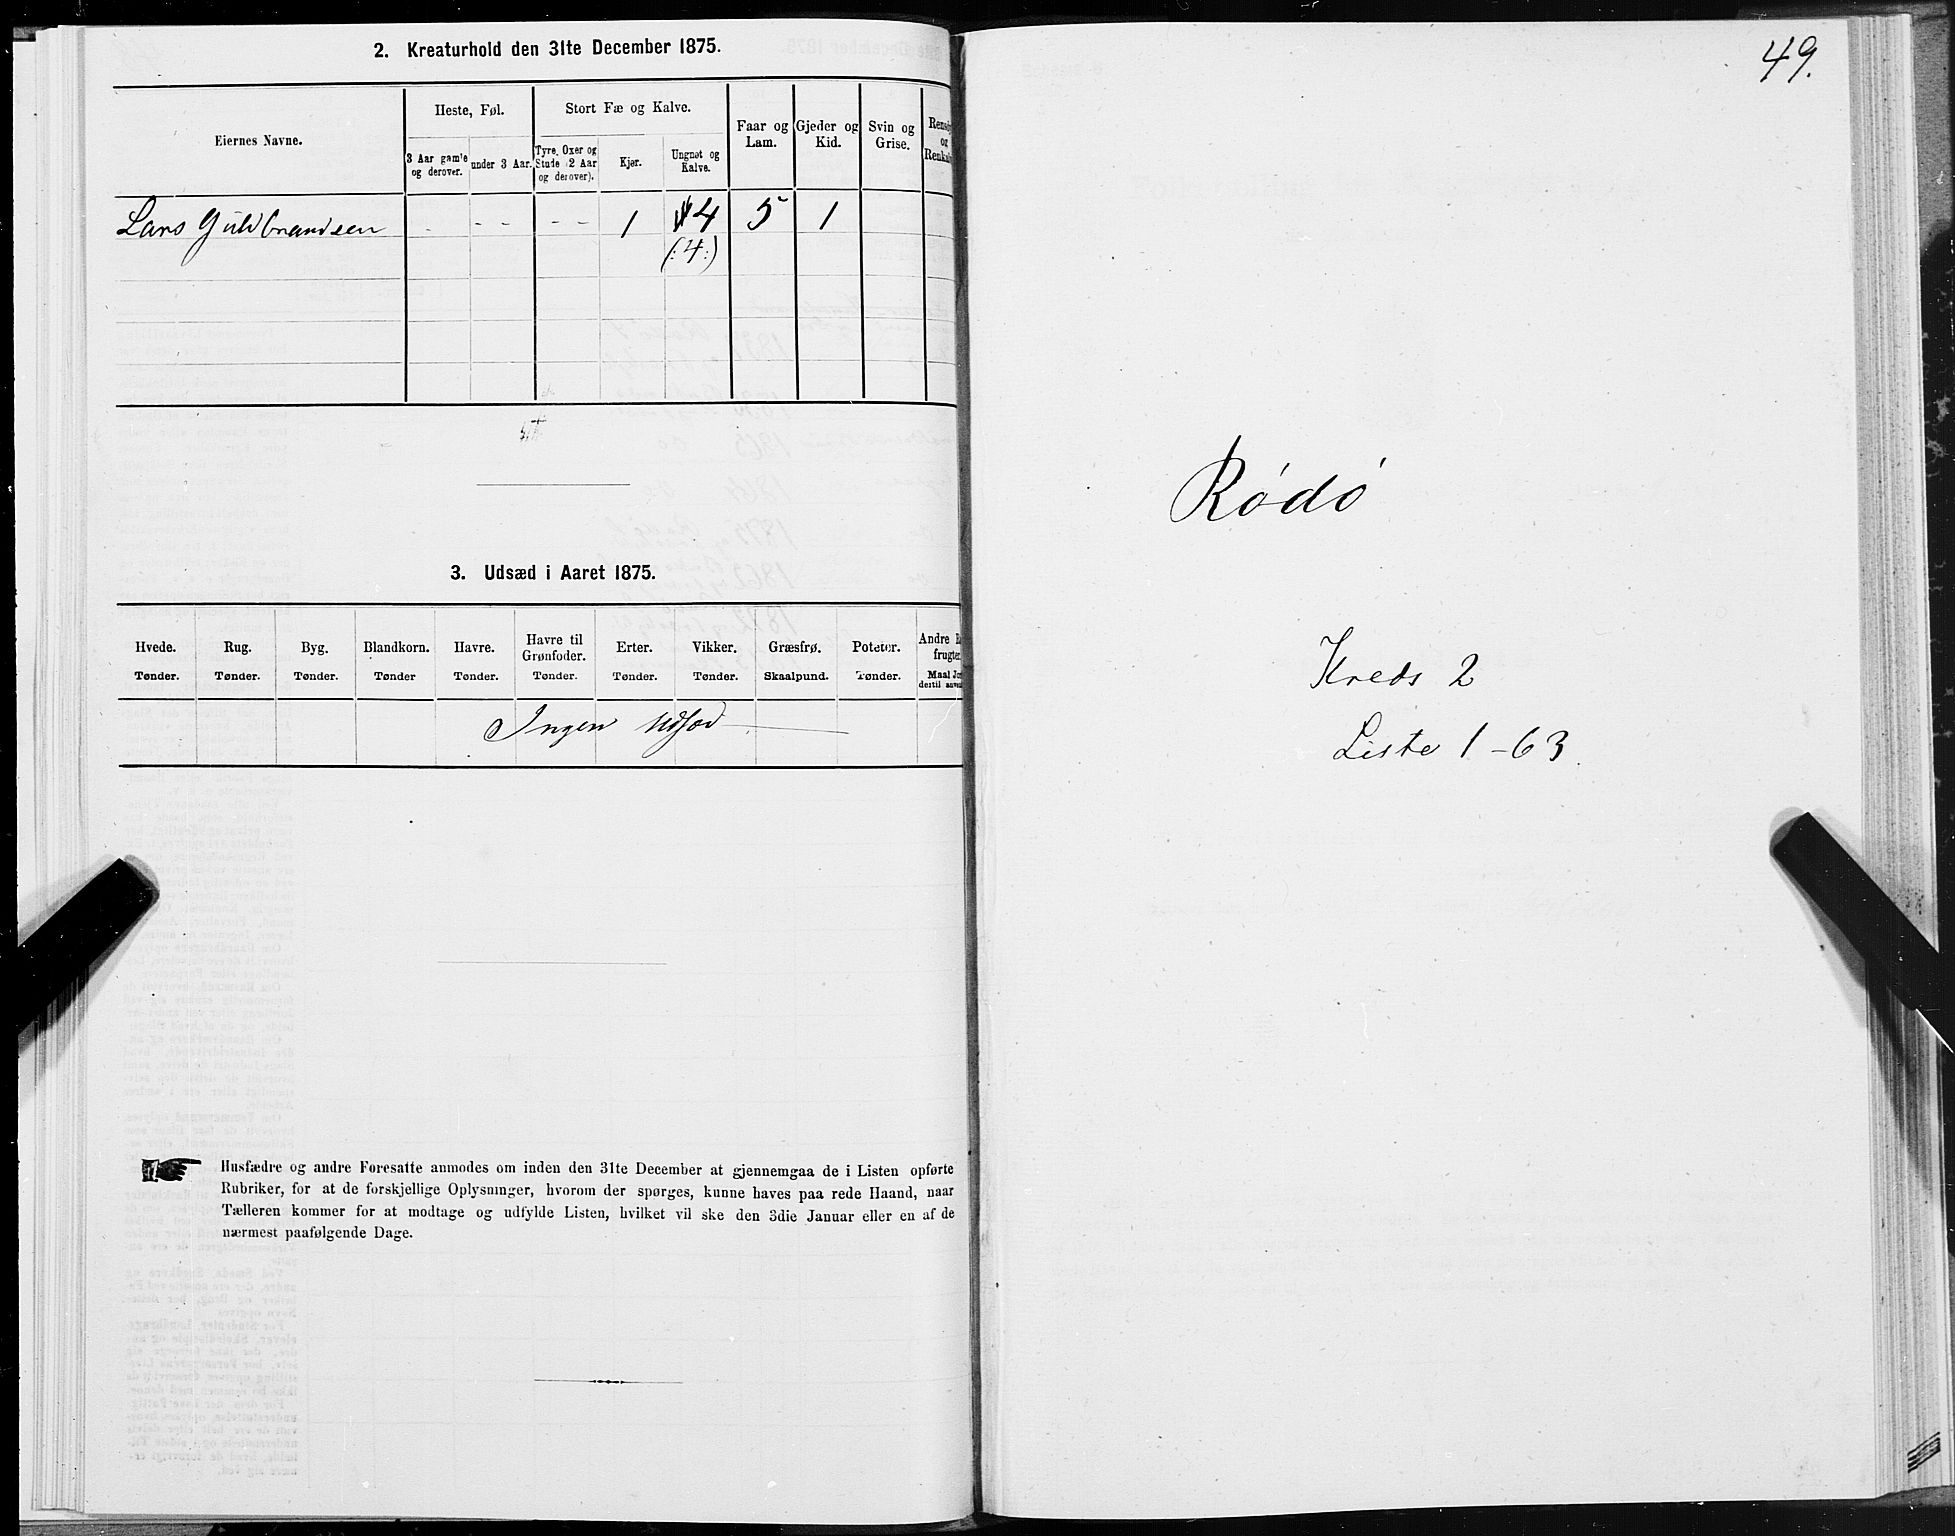 2. Kreaturhold den 31te December 1875.
Eiernes Navne.
Heste, Føl.
Stort Fæ og Kalve.
3 Aar gam'e og derover.
under 3 Aar.
Tyre, Oxer og Stude (2 Aar og derover).
Kjør.
Ungnøt og Kalve.
Faar og Lam.
Gjeder og Kid.
Svin og Grise.
og
Lars Guldbrandsen - - - - - 1 4 5 1
(:4:)
3. Udsæd i Aaret 1875.
Hvede. Rug. Byg. Blandkorn. Havre. Havre til Grønfoder. Erter. Vikker. Græsfrø. Poteter. Andre
Tønder. Tønder. Tønder. Tønder Tønder. Tønder. Tønder. Tønder. Skaalpund. Tønder. Maal
Ingen Udsæd
Husfædre og andre Foresatte anmodes om inden den 31te December at gjennemgaa de i Listen opførte
Rubriker, for at de forskjellige Oplysninger, hvorom der spørges, kunne haves paa rede Haand, naar
Tælleren kommer for at modtage og udfylde Listen, hvilket vil ske den 3die Januar eller en af de
nærmest paafølgende Dage.
49.
Rødø
Kreds 2
Liste 1-63.